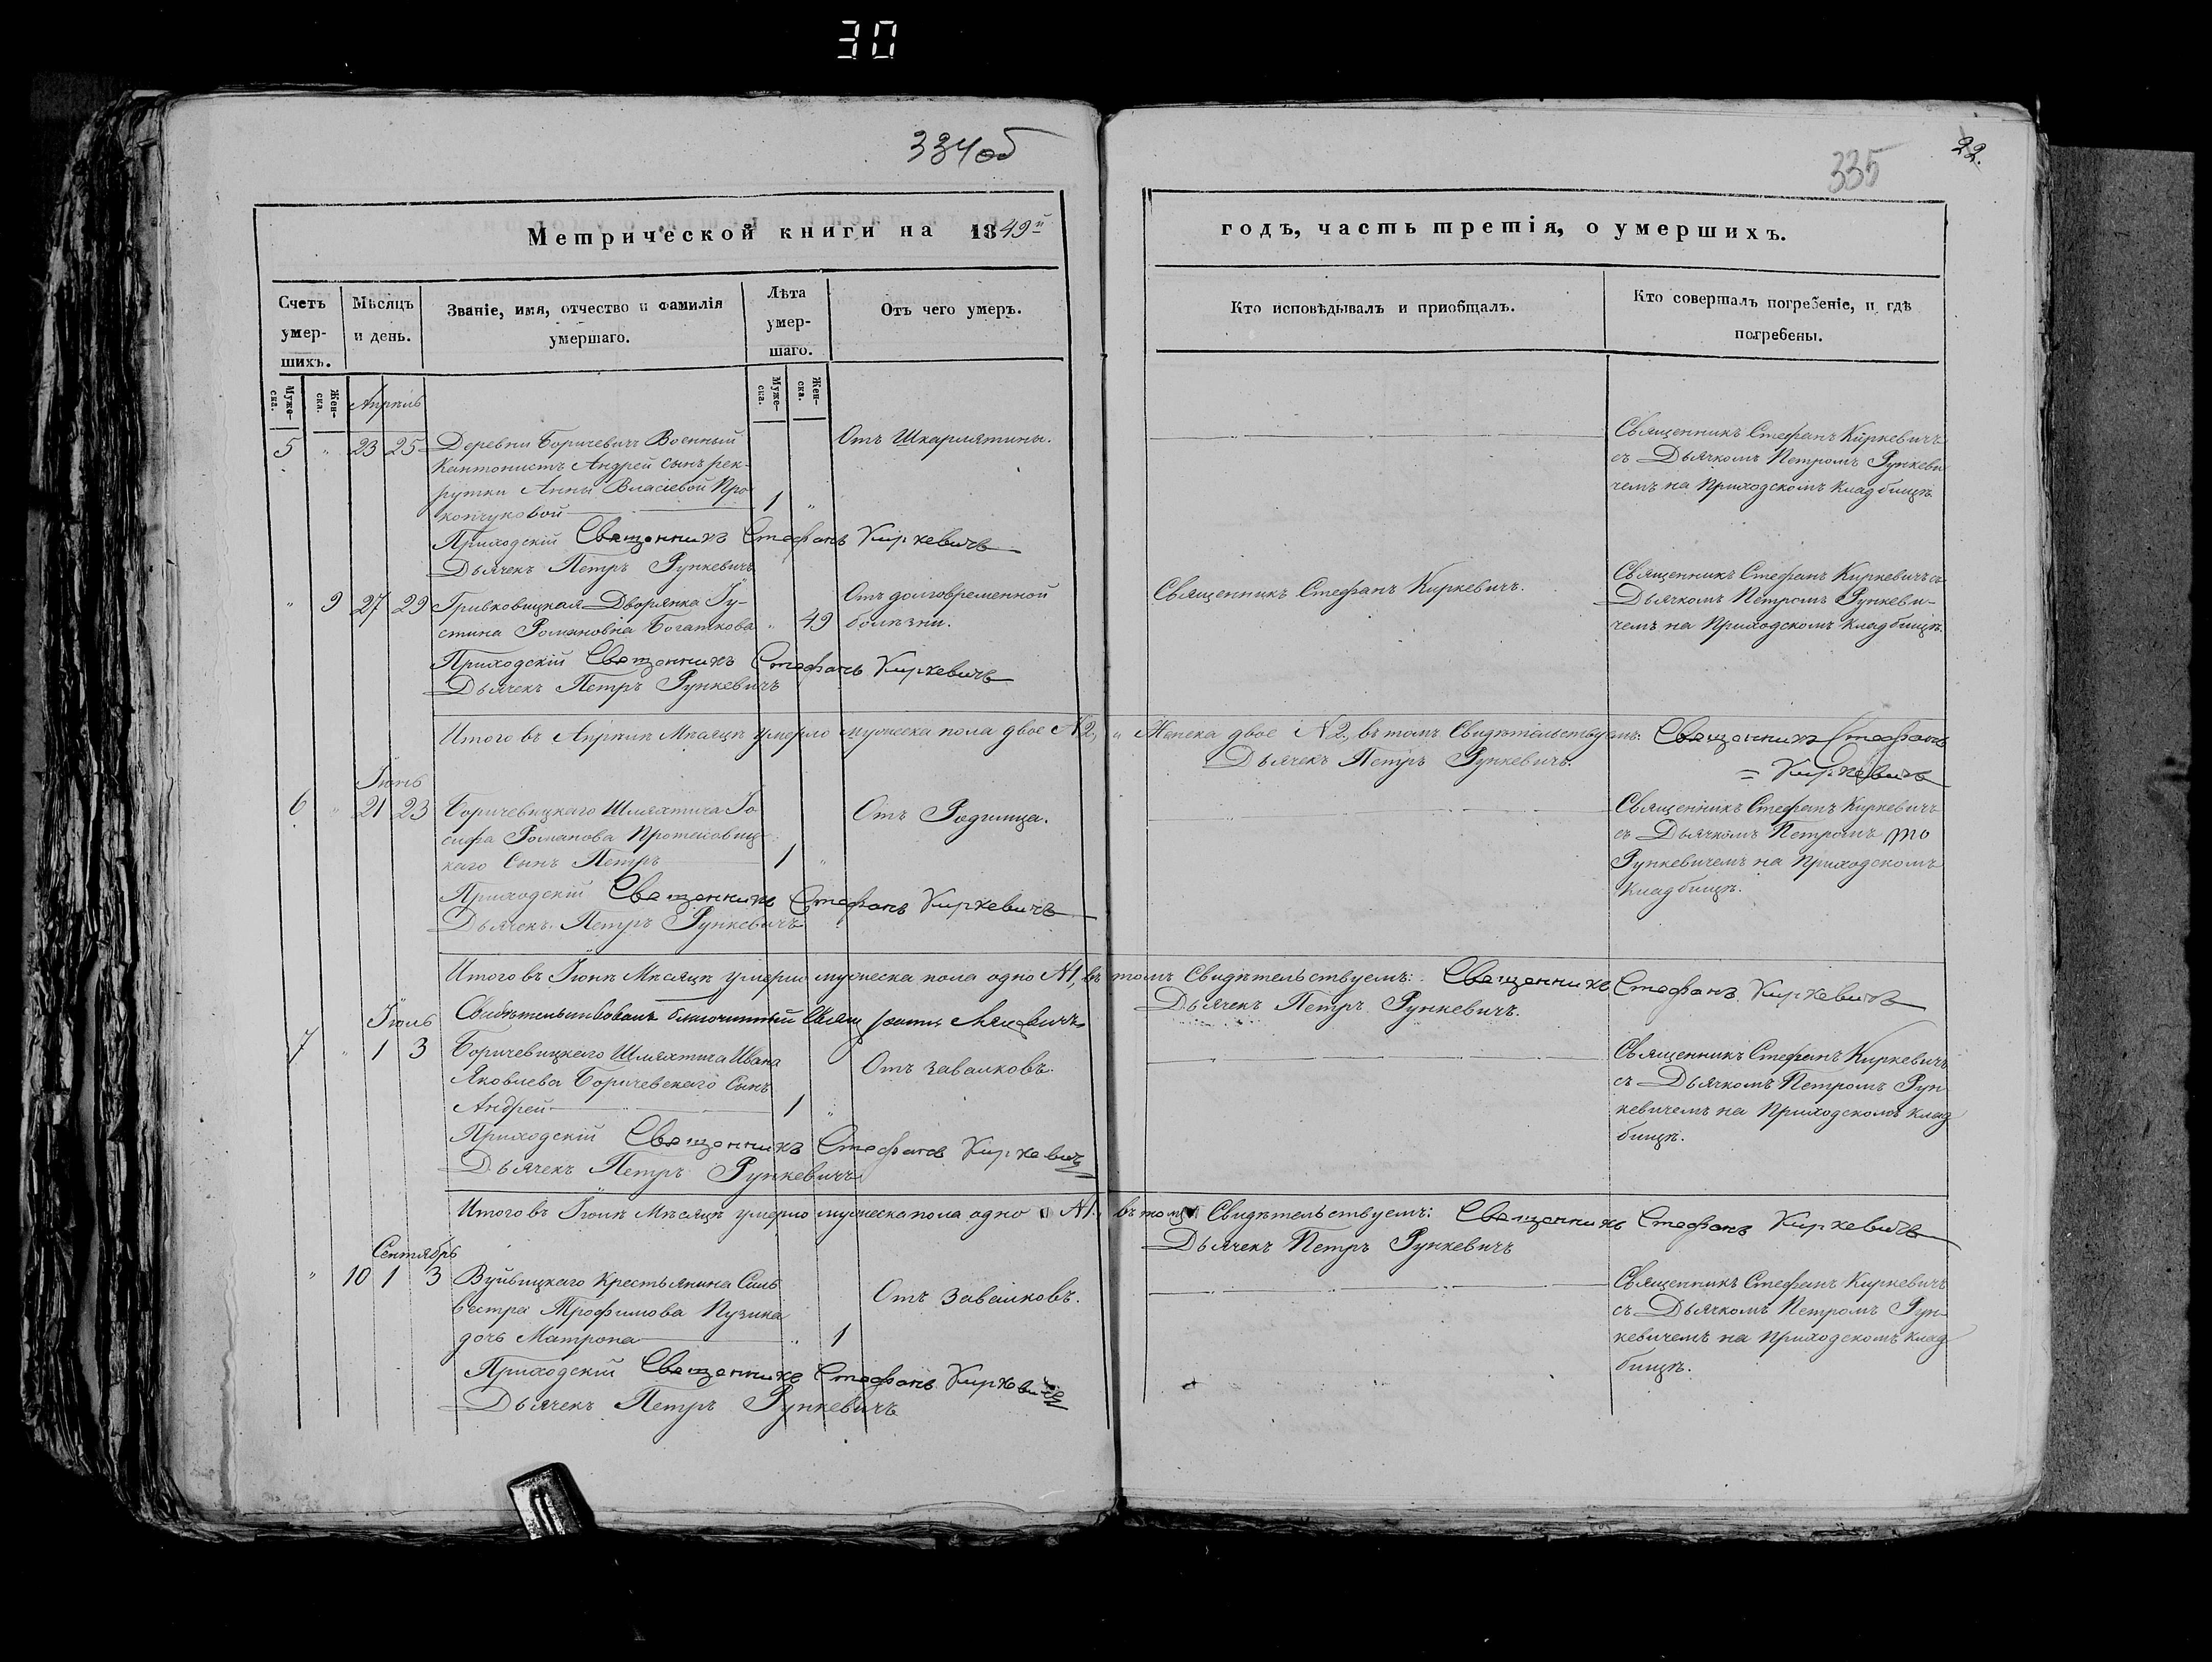 30
334об
335
22.
Метрической книги на 1849й
годъ, часть третія, о умершихъ.
Счетъ умер-
шихъ.
Мѣсяцъ
и день.
Званіе, имя, отчество и фамилія
умершаго.
Лѣта
умер-
шаго.
Отъ чего умеръ.
Кто исповѣдывалъ и приобщалъ.
Кто совершалъ погребеніе, и гдѣ
погребены.
Муже-
ска.
Жен-
ска.
Муже-
ска.
Жен-
ска.
Апрѣль
5 " 23 25 Деревни Боричевичъ Военный
Кантонистъ Андрей сынъ рек-
рутки Анны Власіевой Про-
копчуковой 1 "
Отъ Шкарлятины.
Священникъ Стефанъ Киркевичъ
съ Дьячкомъ Петромъ Рункеви
чемъ на Приходскомъ Кладбищѣ.
Приходскій Священникъ Стефанъ Киркевичъ
Дьячекъ Петръ Рункевичъ
" 9 27 29 Гривковицкая Дворянка Іу-
стина Романовна Богаткова " 49
Отъ долговременной
болѣзни.
Священникъ Стефанъ Киркевичъ.
Священникъ Стефанъ Киркевичъ съ
Дьячкомъ Петромъ Рункеви-
чемъ на Приходскомъ Кладбищѣ.
Приходскій Священникъ Стефанъ Киркевичъ
Дьячекъ Петръ Рункевичъ
Итого въ Апрѣлѣ Мѣсяцѣ умерло мужеска пола двое N2, и Женска двое N2, въ томъ Свидѣтельствуемъ: Священникъ Стефанъ
Киркевичъ
Дьячекъ Петръ Рункевичъ.
Іюнь
6 " 21 23 Боричевицкаго Шляхтича Іо
сифа Романова Протасовиц-
каго Сынъ Петръ 1 "
Отъ Родимца.
Священникъ Стефанъ Киркевичъ
съ Дьячкомъ Петромъ
Рункевичемъ на Приходскомъ
Кладбищѣ.
Приходскій Священникъ Стефанъ Киркевичъ
Дьячекъ Петръ Рункевичъ
Итого въ Іюнѣ Мѣсяцѣ умерло мужеска пола одно N1, въ томъ Свидѣтельствуемъ: Священникъ Стефанъ Киркевичъ
Дьячекъ Петръ Рункевичъ.
Свидѣтельствовалъ благочинный
Іюль
7 " 1 3 Боричевицкаго Шляхтича Ивана
Яковлева Боричевскаго Сынъ
Андрей 1 "
Отъ завалковъ.
Священникъ Стефанъ Киркевичъ
съ Дьячкомъ Петромъ Рун
кевичемъ на Приходскомъ клад
бищѣ.
Приходскій Священникъ Стефанъ Киркевичъ
Дьячекъ Петръ Рункевичъ
Итого въ Іюлѣ Мѣсяцѣ умерло мужеска пола одно N1, въ томъ Свидѣтельствуемъ: Священникъ Стефанъ Киркевичъ
Дьячекъ Петръ Рункевичъ
Сентябрь
" 10 1 3 Вуйвицкаго Крестьянина Силь
вестра Трофимова Пузика
дочь Матрона " 1
Отъ Завалковъ.
Священникъ Стефанъ Киркевичъ
съ Дьячкомъ Петромъ Рун-
кевичемъ на Приходскомъ клад
бищѣ.
Приходскій Священникъ Стефанъ Киркевичъ
Дьячекъ Петръ Рункевичъ